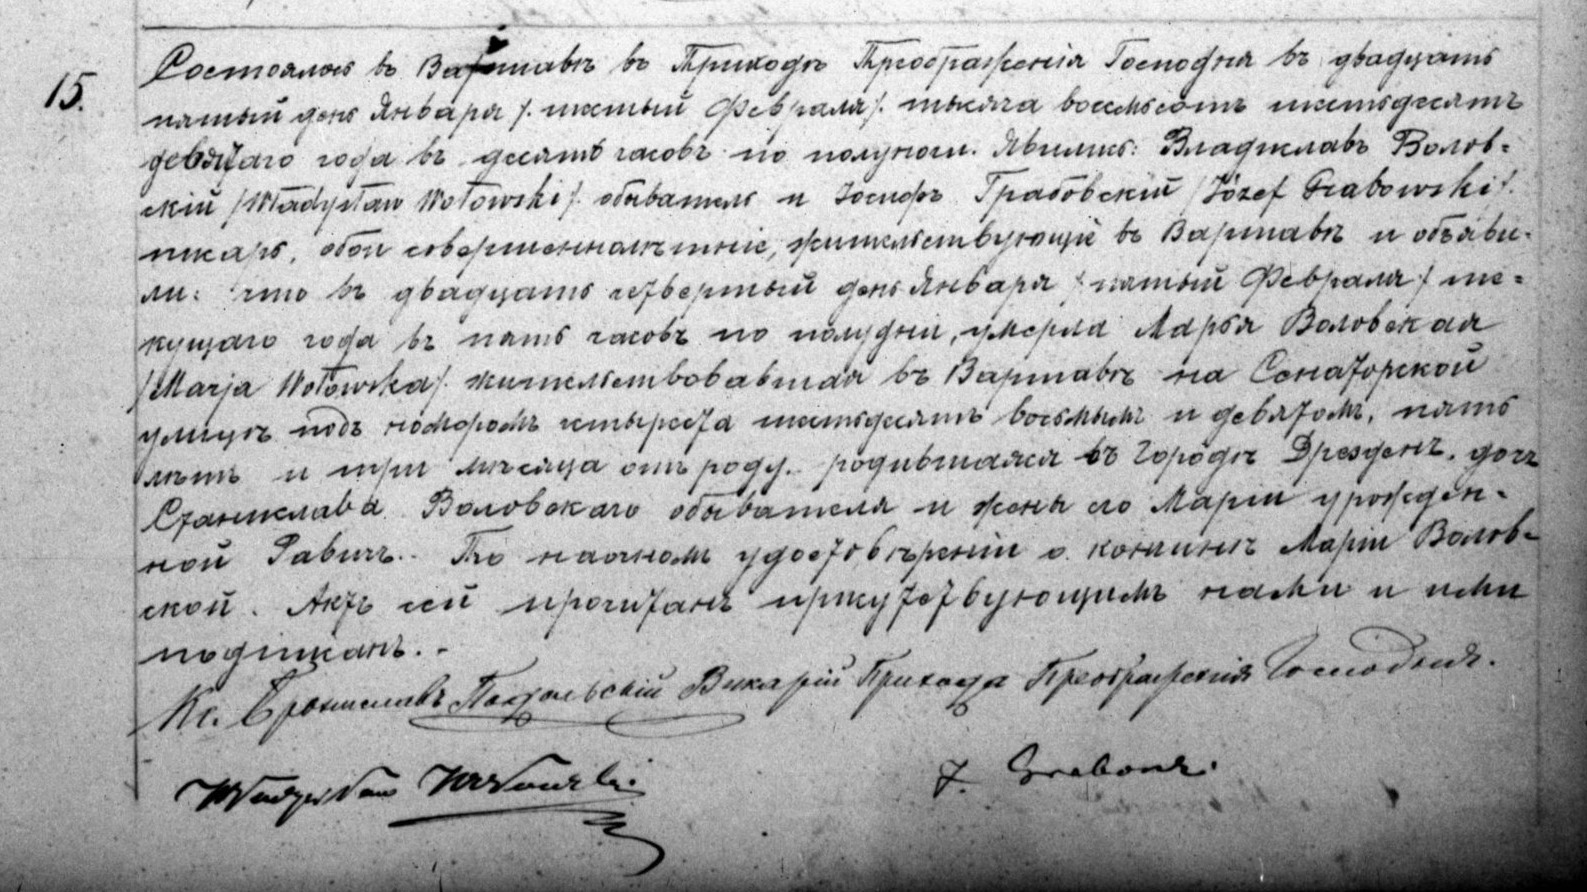 15.
Состоялось въ Варшавѣ въ Приходѣ Преображенія Господня въ двадцать
пятый день Января /. шестый Февраля/. тысяча восемьсотъ шестьдесятъ
девятаго года въ десять часовъ по полуночи. Явились: Владиславъ Волов=
скій /Władysław Wołowski/. обыватель и Іосифъ Грабовскій /Józef Grabowski/.
писарь, обои совершеннолѣтніе, жительствующіе въ Варшавѣ и объяви=
ли: что въ двадцать четвертый день Января /пятый Февраля/ те=
кущаго года въ пять часовъ по полудни, умерла Марья Воловская
/Marja Wołowska/. жительствовавшая въ Варшавѣ на Сенаторской
улицѣ подъ номоромъ четыреста шестьдесятъ восьмымъ и девятомъ, пять
лѣтъ и три мѣсяца отъ роду. родившаяся въ Городѣ Дрезденѣ, дочь
Станислава Воловскаго обывателя и жены его Маріи урожден=
ной Равичъ. По наочномъ удостовѣреніи о кончинѣ Маріи Волов=
ской. Актъ сей прочитанъ присутствующимъ нами и ими
подписанъ. -
Кс. Брониславъ Викарій Прихода Преображенія Господня.
Władysław Wołowski
J. Grabowski